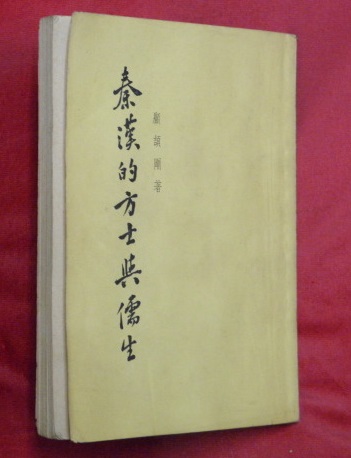 秦漢的方士與儒生
顧頡剛著